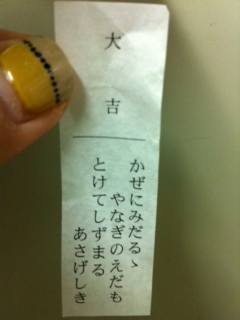 大吉
かぜにみだるゝ
やなぎのえだも
とけてしずまる
あさげしき